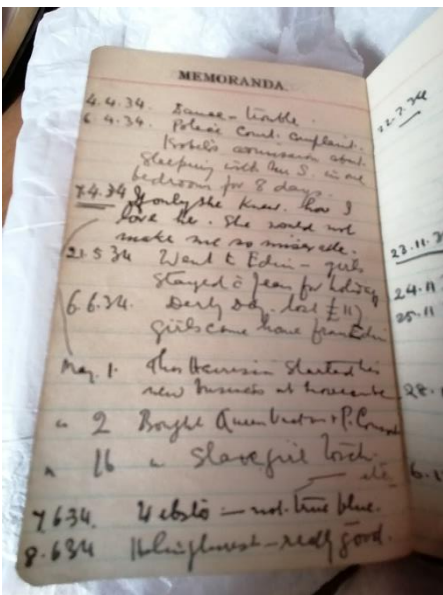 MEMORANDA.
4.4.34. Dance – trouble.
6.4.34. Police Court. Complaint.
Isobel's admission about
Sleeping with Mr S. in one
bedroom for 8 days.
7.4.34 If only she knew how I
love her. She would not
make me so miserable.
21.5.34 Went to Edin – girls
stayed Jean for holiday
6.6.34. Derby Day. lost £11
girls came home from Edin
May. 1. started his
new business at
" 2 Bought Queen
" 16 " Slave girl torch.
etc
7.6.34. – not true blue.
8.6.34 – really good.
22.7.34
23.11.3
24.11
25.11
28.
6.1